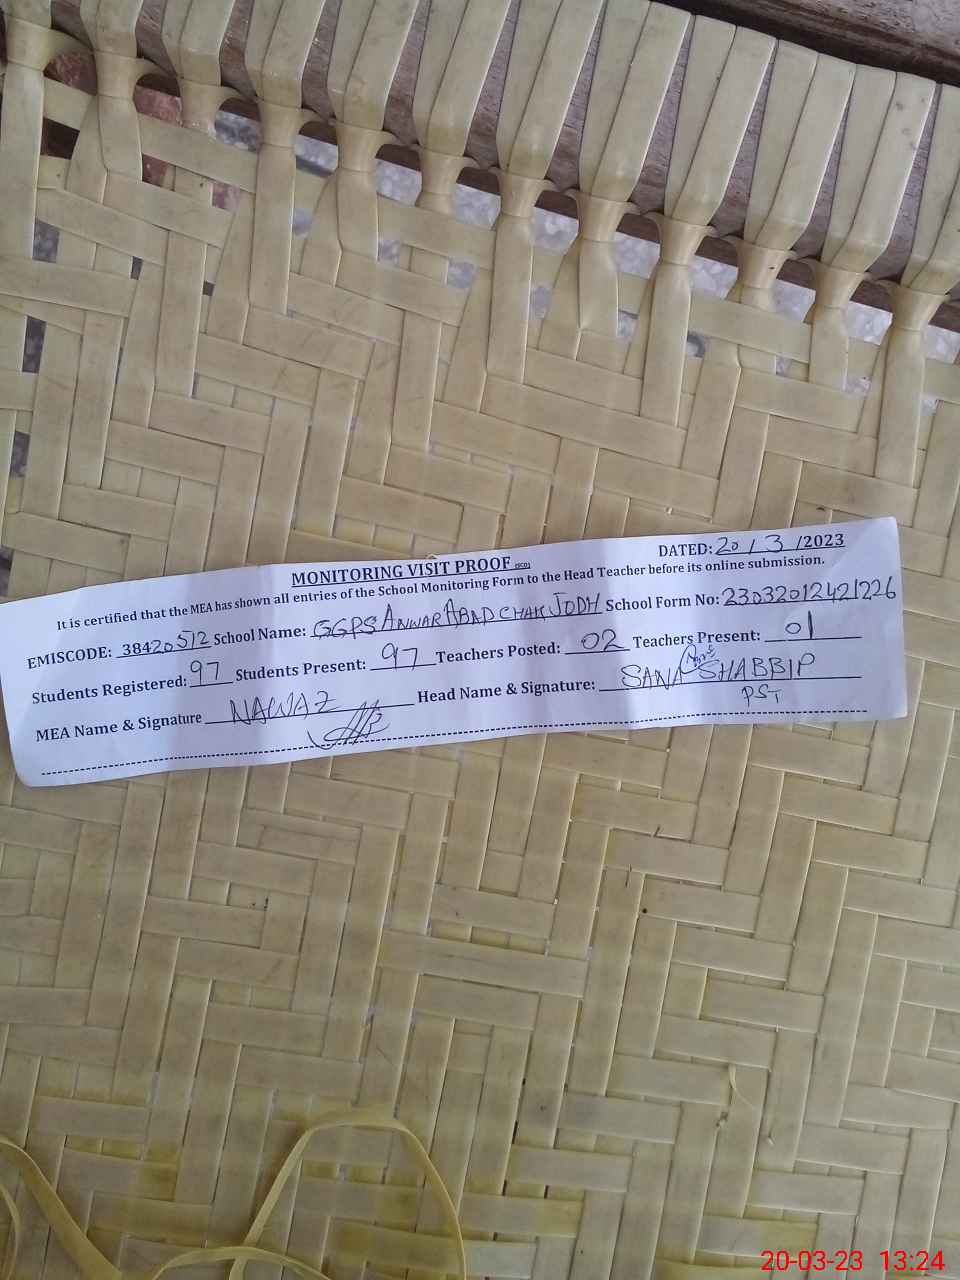 MONITORING VISIT PROOF
DATED: 20 / 3 /2023
It is certified that the MEA has shown all entries of the School Monitoring Form to the Head Teacher before its online submission.
EMISCODE: 38420512 School Name: GGPS ANWAR ABAD CHAK JODH School Form No: 2303201242 1226
Students Registered: 97 Students Present: 97 Teachers Posted: 02 Teachers Present: 01
MEA Name & Signature NAWAZ Head Name & Signature: SANA SHABBIR
PST
20-03-23 13:24